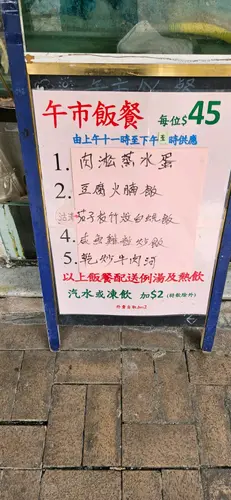 午市飯餐 每位$45
由上午十一時至下午 時供應
1. 肉崧蒸水蛋
2. 豆腐火腩飯
茄子 飯
4. 炒飯
5. 乾炒牛肉河
以上飯餐配送例湯及熱飲
汽水或凍飲 加$2 (特飲除外)
外賣盒每加$2